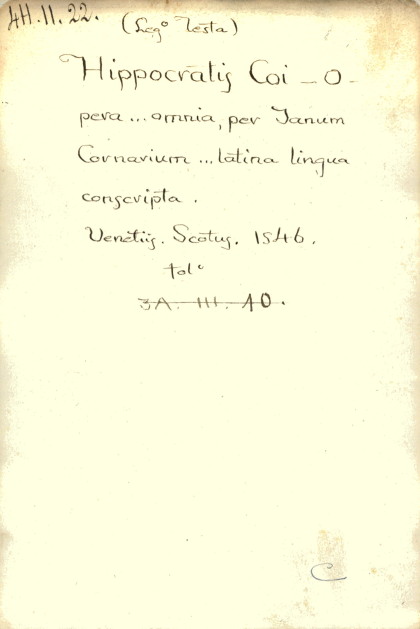 4H.11.22. (Legº Testa)
Hippocratis Coi - O-
pera ... omnia, per Janum
Cornarium ... latina lingua
conscripta.
Venetiis. Scotus. 1546.
folº
3A. III. 10.
C